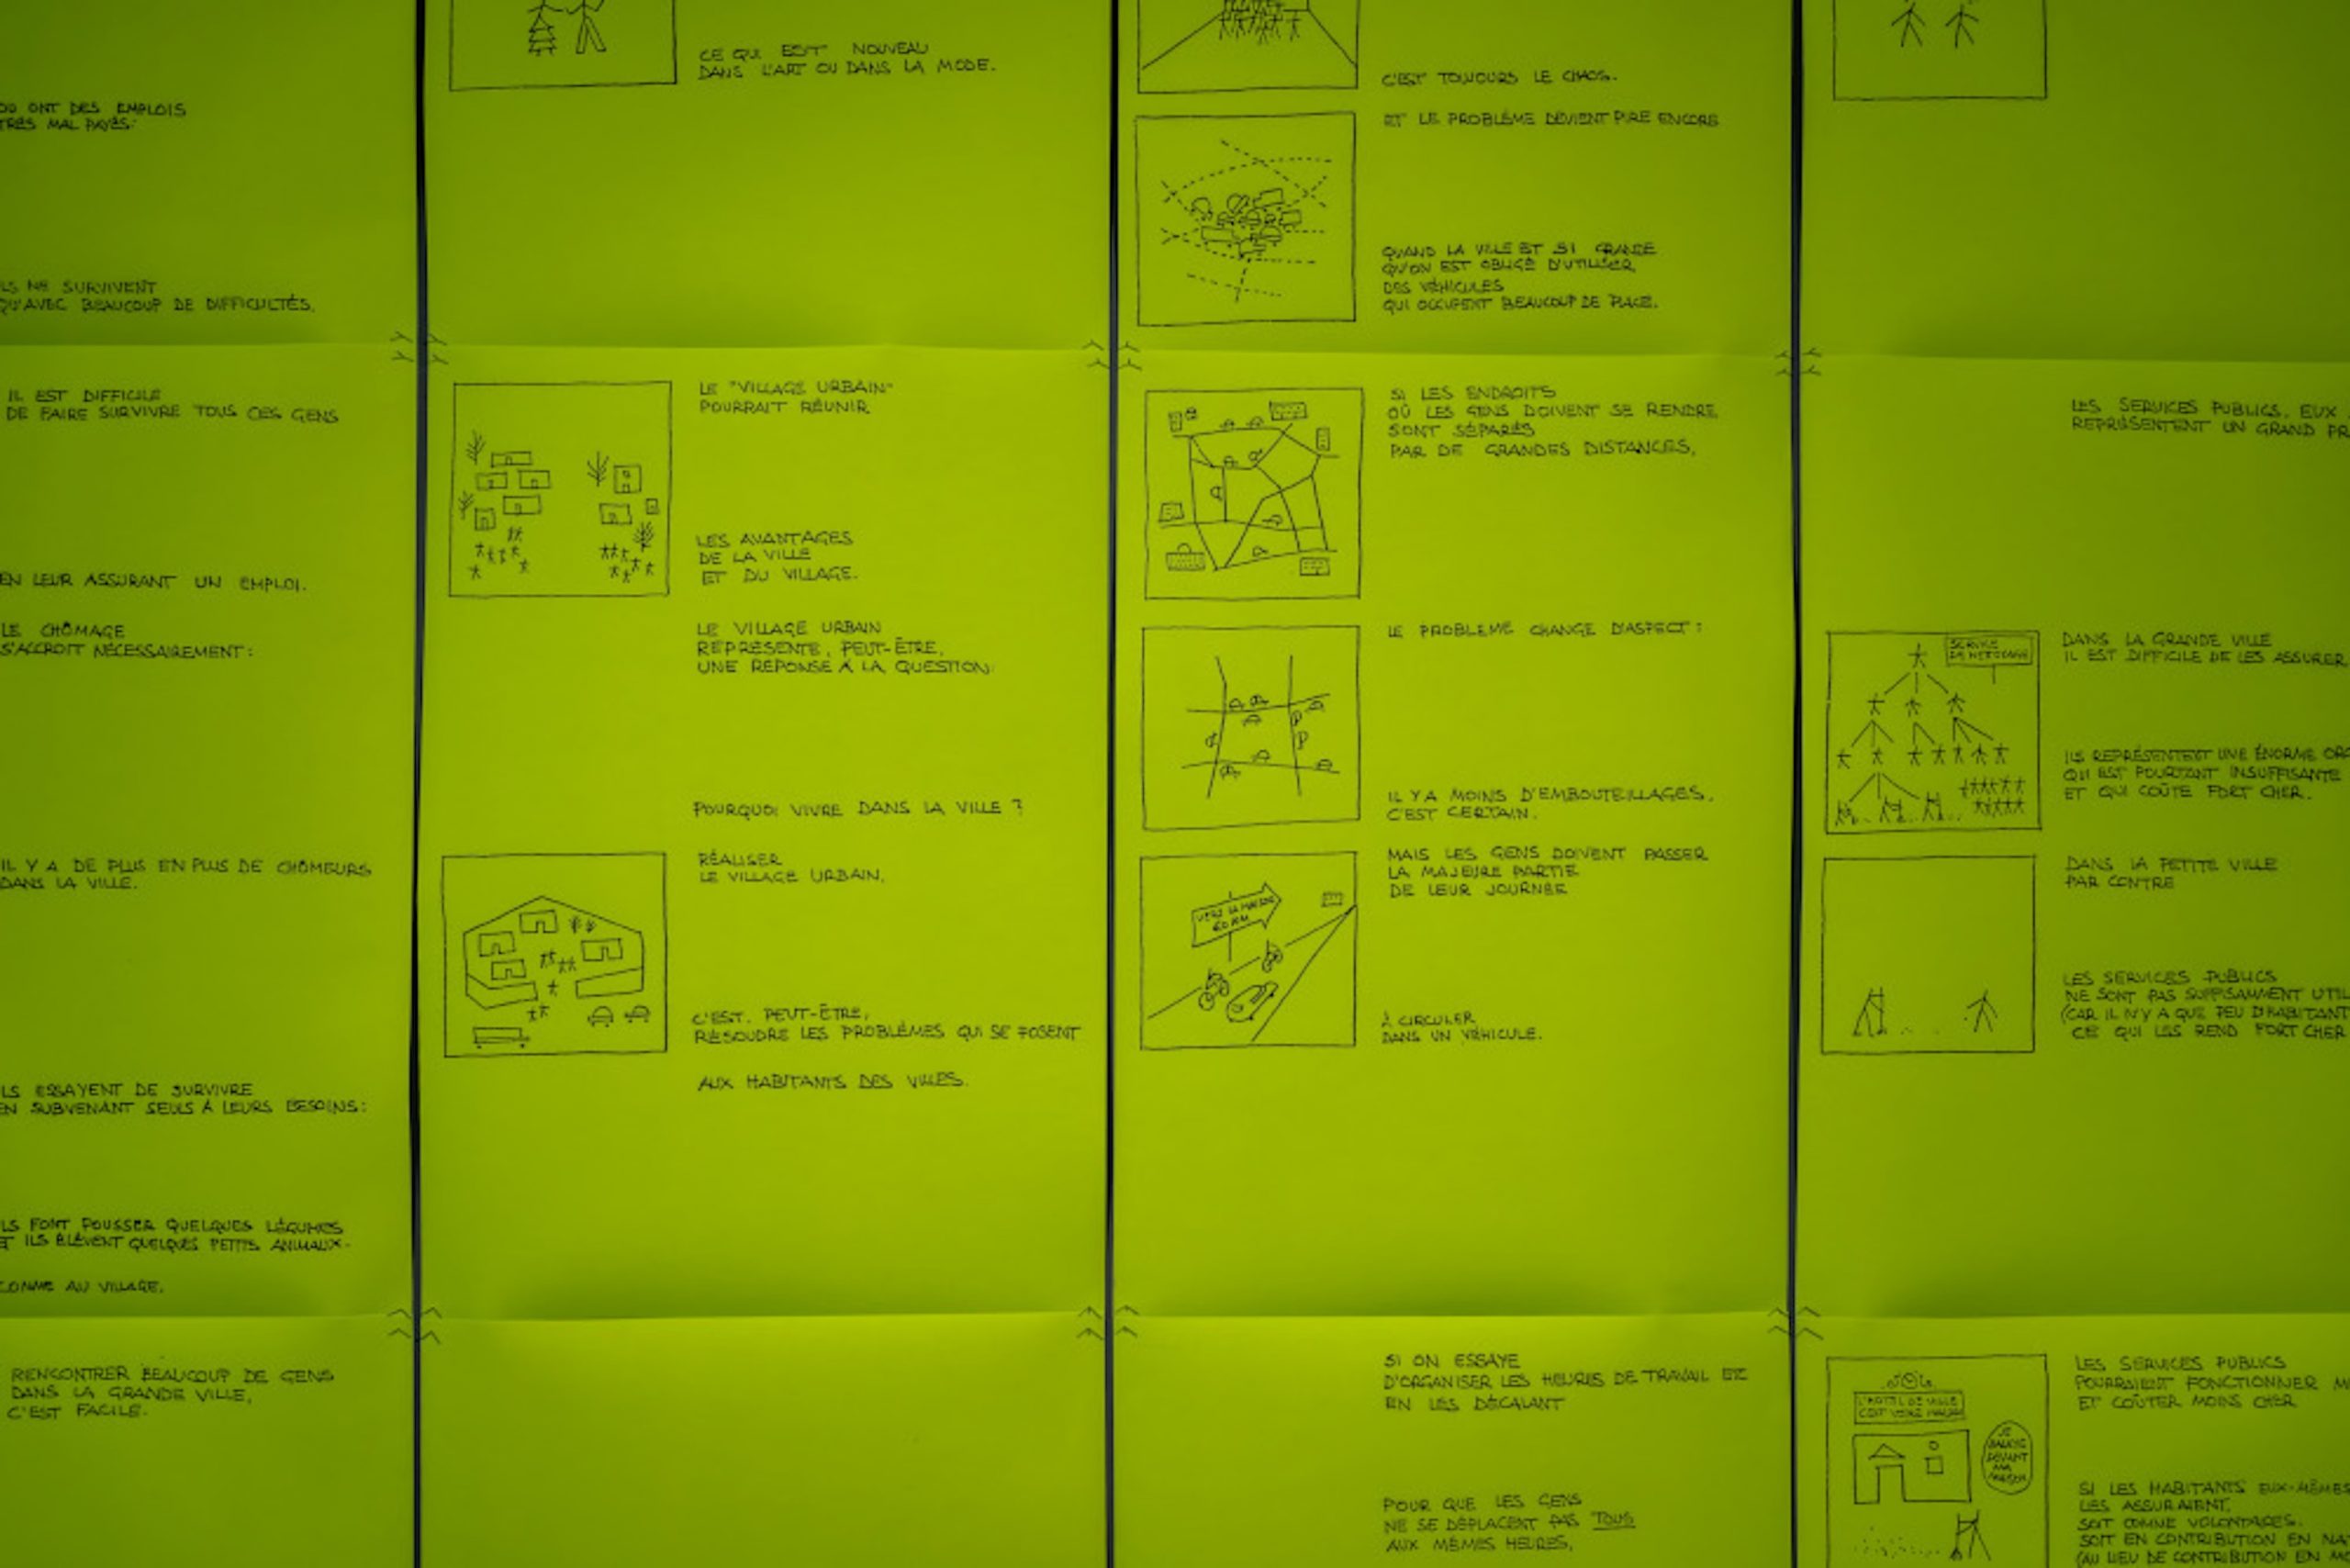 OU ONT DES EMPLOIS
TRÈS MAL PAYÉS:
ILS NE SURVIVENT
QU'AVEC BEAUCOUP DE DIFFICULTÉS.
IL EST DIFFICILE
DE FAIRE SURVIVRE TOUS CES GENS
EN LEUR ASSURANT UN EMPLOI.
LE CHÔMAGE
S'ACCROIT NÉCESSAIREMENT:
IL Y A DE PLUS EN PLUS DE CHÔMEURS
DANS LA VILLE.
ILS ESSAYENT DE SURVIVRE
EN SUBVENANT SEULS À LEURS BESOINS:
ILS FONT POUSSER QUELQUES LÉGUMES
ET ILS ÉLÈVENT QUELQUES PETITS ANIMAUX-
COMME AU VILLAGE.
RENCONTRER BEAUCOUP DE GENS
DANS LA GRANDE VILLE,
C'EST FACILE.
CE QUI EST NOUVEAU
DANS L'ART OU DANS LA MODE.
LE "VILLAGE URBAIN"
POURRAIT RÉUNIR
LES AVANTAGES
DE LA VILLE
ET DU VILLAGE.
LE VILLAGE URBAIN
REPRÉSENTE, PEUT-ÊTRE,
UNE RÉPONSE À LA QUESTION:
POURQUOI VIVRE DANS LA VILLE ?
RÉALISER
LE VILLAGE URBAIN,
C'EST, PEUT-ÊTRE,
RÉSOUDRE LES PROBLÈMES QUI SE POSENT
AUX HABITANTS DES VILLES.
C'EST TOUJOURS LE CHAOS.
ET LE PROBLÈME DEVIENT PIRE ENCORE
QUAND LA VILLE ET SI GRANDE
QU'ON EST OBLIGÉ D'UTILISER,
DES VÉHICULES
QUI OCCUPENT BEAUCOUP DE PLACE.
SI LES ENDROITS
OÙ LES GENS DOIVENT SE RENDRE,
SONT SÉPARÉS
PAR DE GRANDES DISTANCES,
LE PROBLÈME CHANGE D'ASPECT:
IL Y A MOINS D'EMBOUTEILLAGES,
C'EST CERTAIN.
VERS LA MAISON
60 KM
MAIS LES GENS DOIVENT PASSER
LA MAJEURE PARTIE
DE LEUR JOURNÉE
À CIRCULER
DANS UN VÉHICULE.
SI ON ESSAYE
D'ORGANISER LES HEURES DE TRAVAIL ETC
EN LES DÉCALANT
POUR QUE LES GENS
NE SE DÉPLACENT PAS TOUS
AUX MÊMES HEURES,
LES SERVICES PUBLICS, EUX
REPRÉSENTENT UN GRAND PR
SERVICE
DE NETTOYAGE
DANS LA GRANDE VILLE
IL EST DIFFICILE DE LES ASSURER
ILS REPRÉSENTENT UNE ÉNORME ORG
QUI EST POURTANT INSUFFISANTE
ET QUI COÛTE FORT CHER.
DANS LA PETITE VILLE
PAR CONTRE
LES SERVICES PUBLICS
NE SONT PAS SUFFISAMMENT UTIL
(CAR IL N'Y A QUE PEU D'HABITANT
CE QUI LES REND FORT CHER
L'HOTEL DE VILLE
C'EST VOTRE MAISON
JE
BALAYE
DEVANT
MA
MAISON
LES SERVICES PUBLICS
POURRAIENT FONCTIONNER MI
ET COÛTER MOINS CHER
SI LES HABITANTS EUX-MÊMES
LES ASSURAIENT,
SOIT COMME VOLONTAIRES.
SOIT EN CONTRIBUTION EN NA
(AU LIEU DE CONTRIBUTION EN